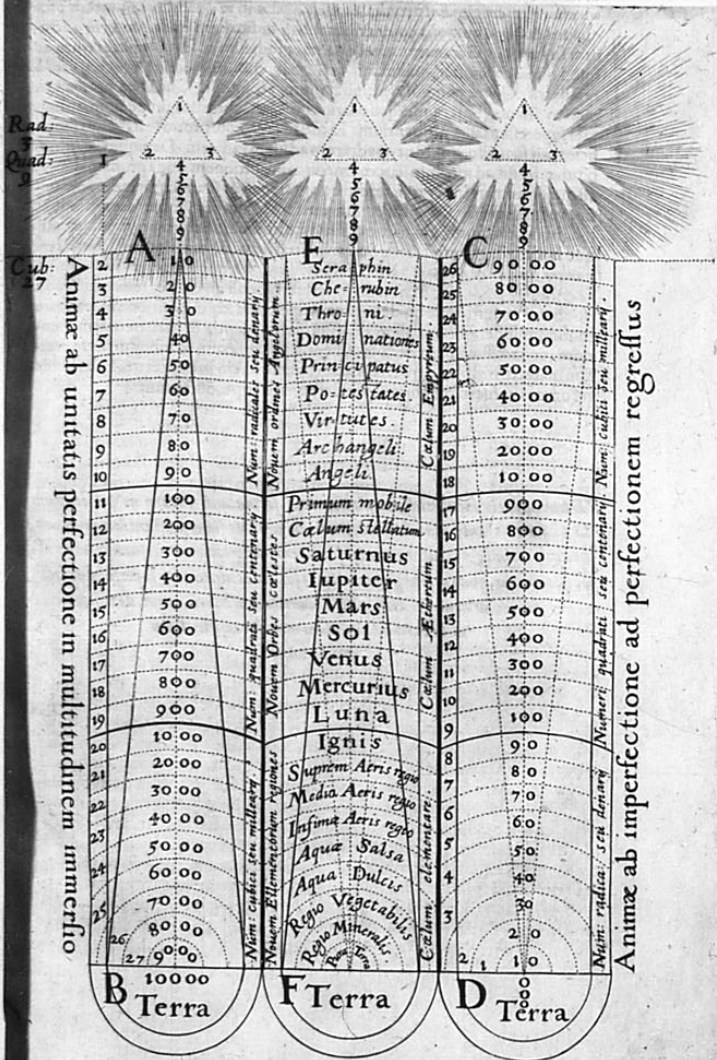 Rad:
3
Quad:
9
Cub:
27
1
2 3
4
5
6
7
8
9
1
2 3
4
5
6
7
8
9
1
2 3
4
5
6
7
8
9
1
A
E
C
Animæ ab unitatis perfectione in multitudinem immersio
2 10
3 20
4 30
5 40
6 50
7 60
8 70
9 80
10 90
11 100
12 200
13 300
14 400
15 500
16 600
17 700
18 800
19 900
20 1000
21 2000
22 3000
23 4000
24 5000
25 6000
7000
26 8000
27 9000
10000
B
Terra
Num: radicales seu denarij
Num: quadrati seu centenarij.
Num: cubici seu millearij.
Nouem ordines Angelorum.
Nouem Orbes cœlestes
Nouem Ellementorum regiones
Seraphin
Che=rubin
Throni.
Dominationes
Principatus
Po=testates.
Virtutes.
Archangeli
Angeli
Primum mobile
Cœlum stellatum
Saturnus
Iupiter
Mars
Sol
Venus
Mercurius
Luna
Ignis
Suprem Aeris regio
Media Aeris regio
Infima Aeris regio
Aquæ Salsa
Aqua Dulcis
Regio Vegetabilis
Regio Mineralis
Terra
F
Terra
Cœlum Empyreum.
Cœlum Æthereum
Cœlum elementare.
26 9000
25 8000
24 7000
23 6000
22 5000
21 4000
20 3000
19 2000
18 1000
17 900
16 800
15 700
14 600
13 500
12 400
11 300
10 200
9 100
8 90
7 80
6 70
5 60
4 50
3 40
30
2 20
1 10
0
0
0
D
Terra
Num: cubici seu millearij.
Numeri quadrati seu centenarij.
Num: radica: seu denarij
Animæ ab imperfectione ad perfectionem regressus